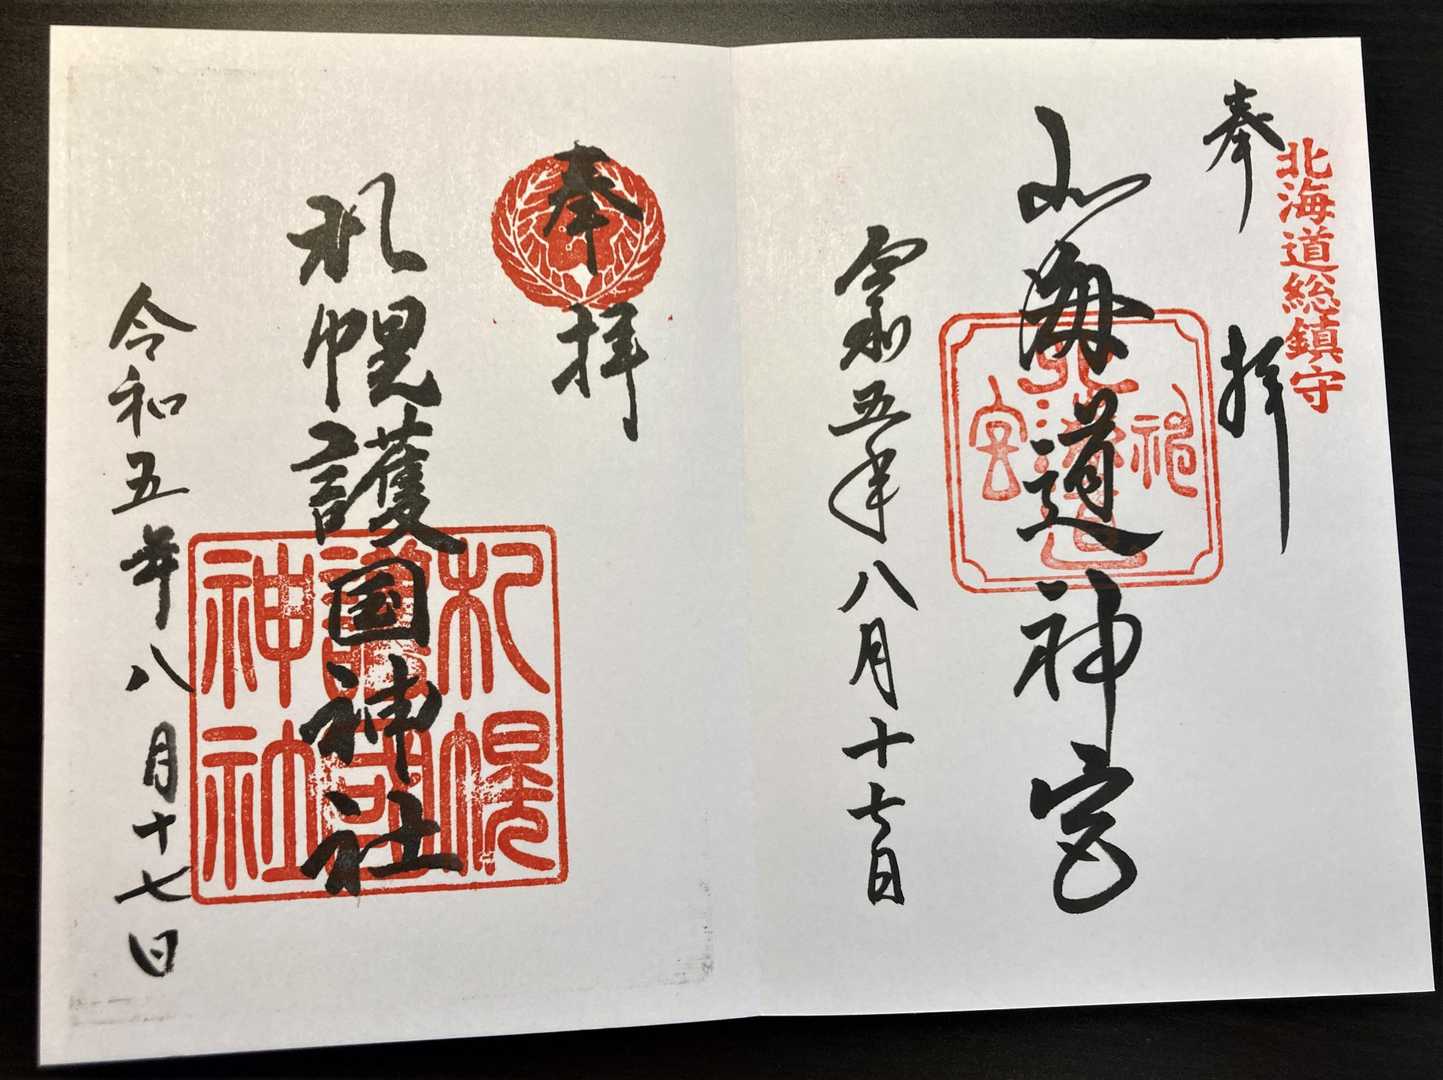 北海道総鎮守
奉拝
北海道神宮
令和五年八月十七日
奉拝
札幌護国神社
札幌
護國
神社
令和五年八月十七日